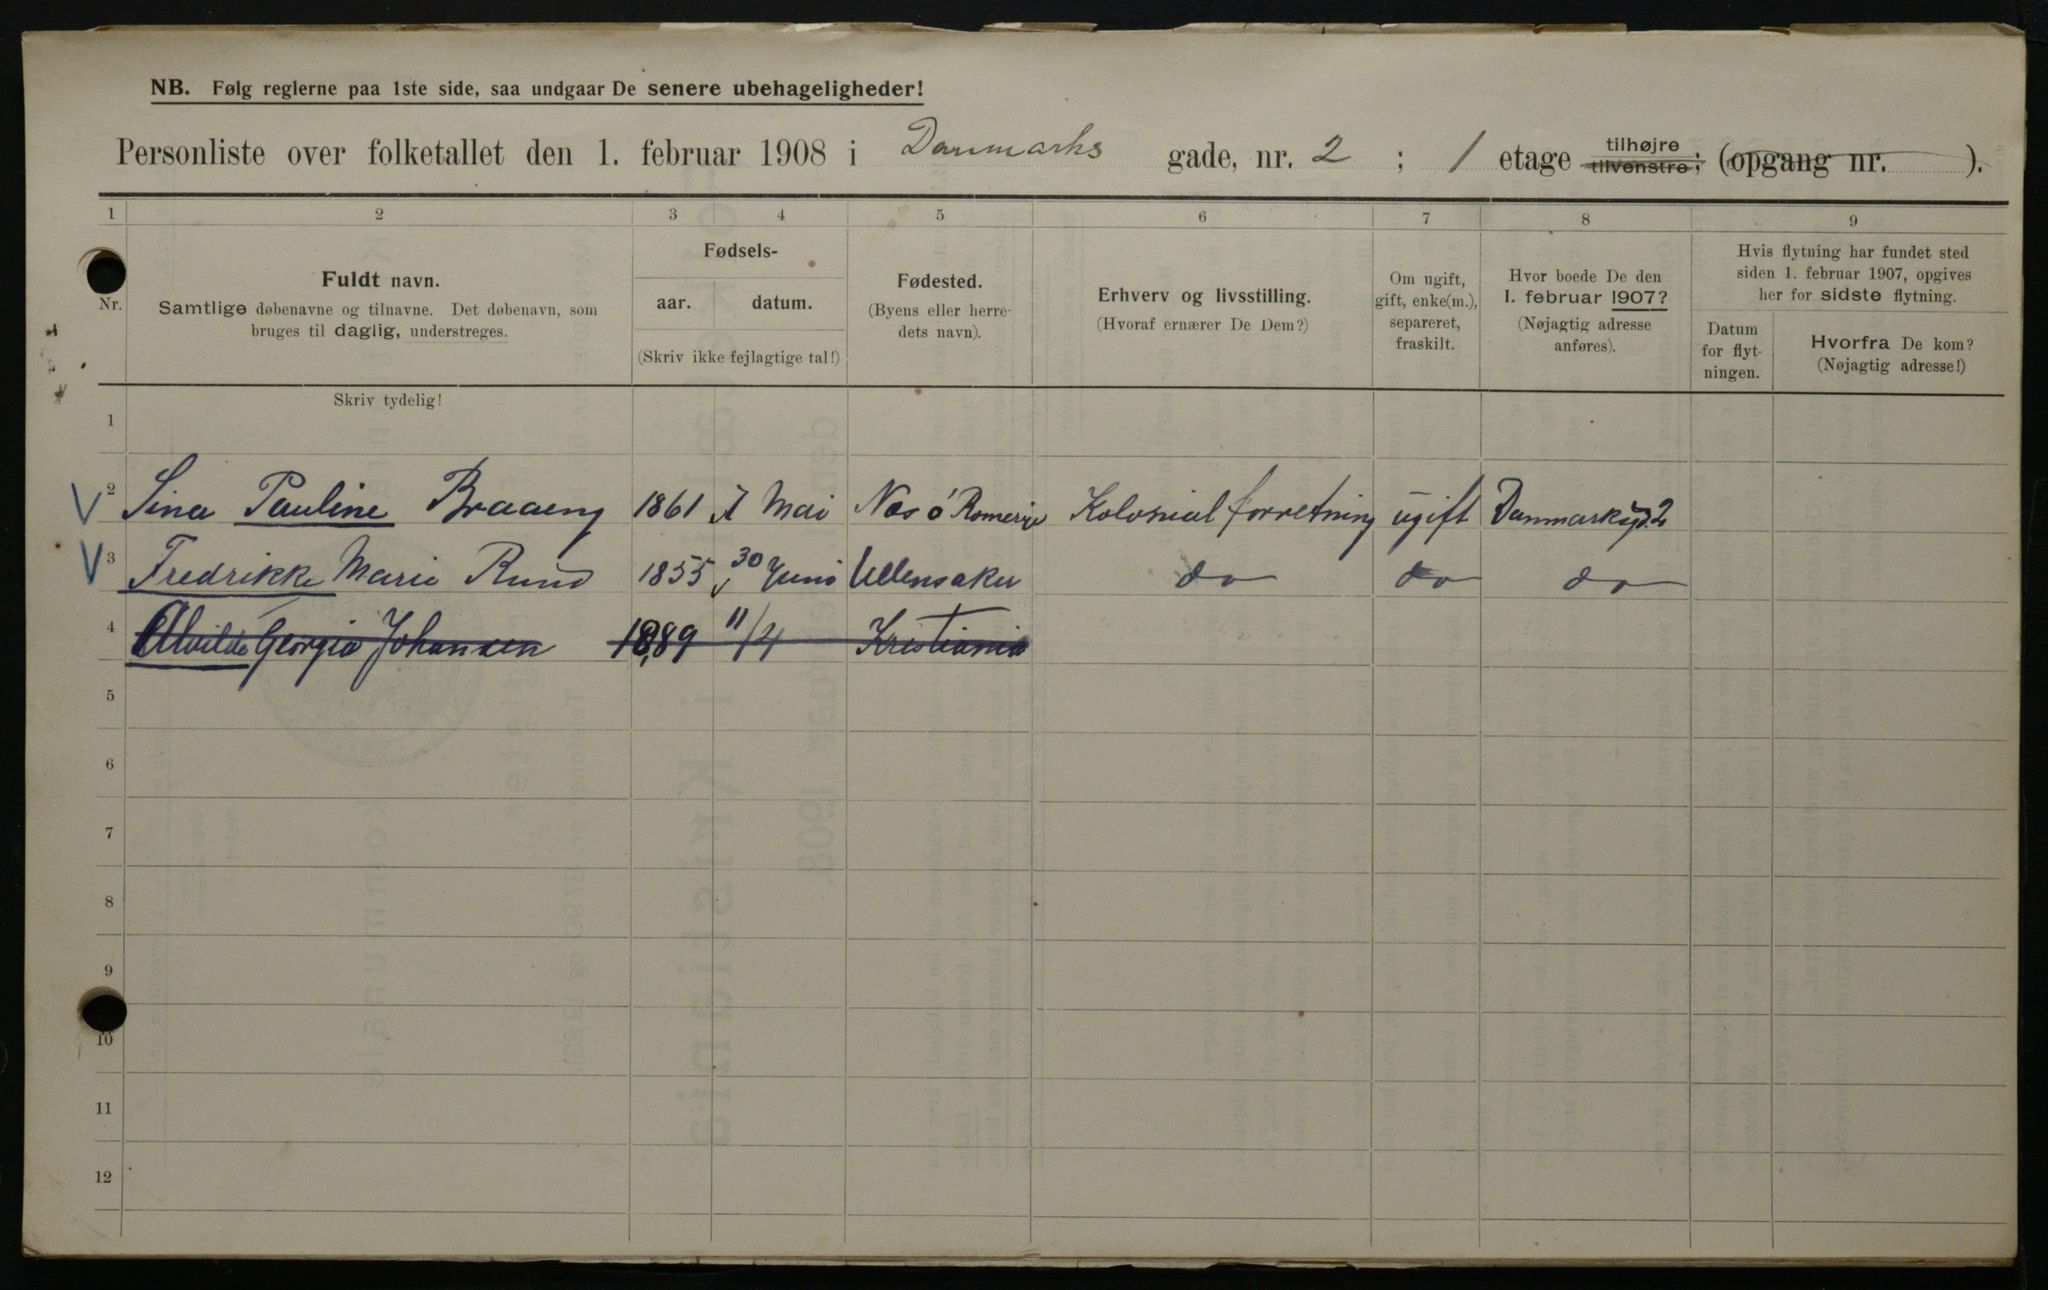 NB. Følg reglerne paa 1ste side, saa undgaar De senere ubehageligheder!
Personliste over folketallet den 1. februar 1908 i Danmarks gade, nr. 2 ; 1 etage tilhøjre tilvenstre; (opgang nr. ).
1 2 3 4 5 6 7 8 9
Nr.
Fuldt navn.
Samtlige døbenavne og tilnavne. Det døbenavn, som
bruges til daglig, understreges.
Fødsels-
aar. datum.
(Skriv ikke fejlagtige tal!)
Fødested.
(Byens eller herre-
dets navn).
Erhverv og livsstilling.
(Hvoraf ernærer De Dem?)
Om ugift,
gift, enke(m.),
separeret,
fraskilt.
Hvor boede De den
1. februar 1907?
(Nøjagtig adresse
anføres).
Hvis flytning har fundet sted
siden 1. februar 1907, opgives
her for sidste flytning.
Datum
for flyt-
ningen.
Hvorfra De kom?
(Nøjagtig adresse!)
Skriv tydelig!
1
V 2 Sina Pauline Braaeng 1861 7 Mai Næs ó Romerige Kolonial forretning ugift Danmarksgd. 2
V 3 Fredrikke Marie Ruud 1855 30 Juni Ullensaker do do do
4 Alvilde Georgia Johansen 1889 11/4 Kristiania
5
6
7
8
9
10
11
12